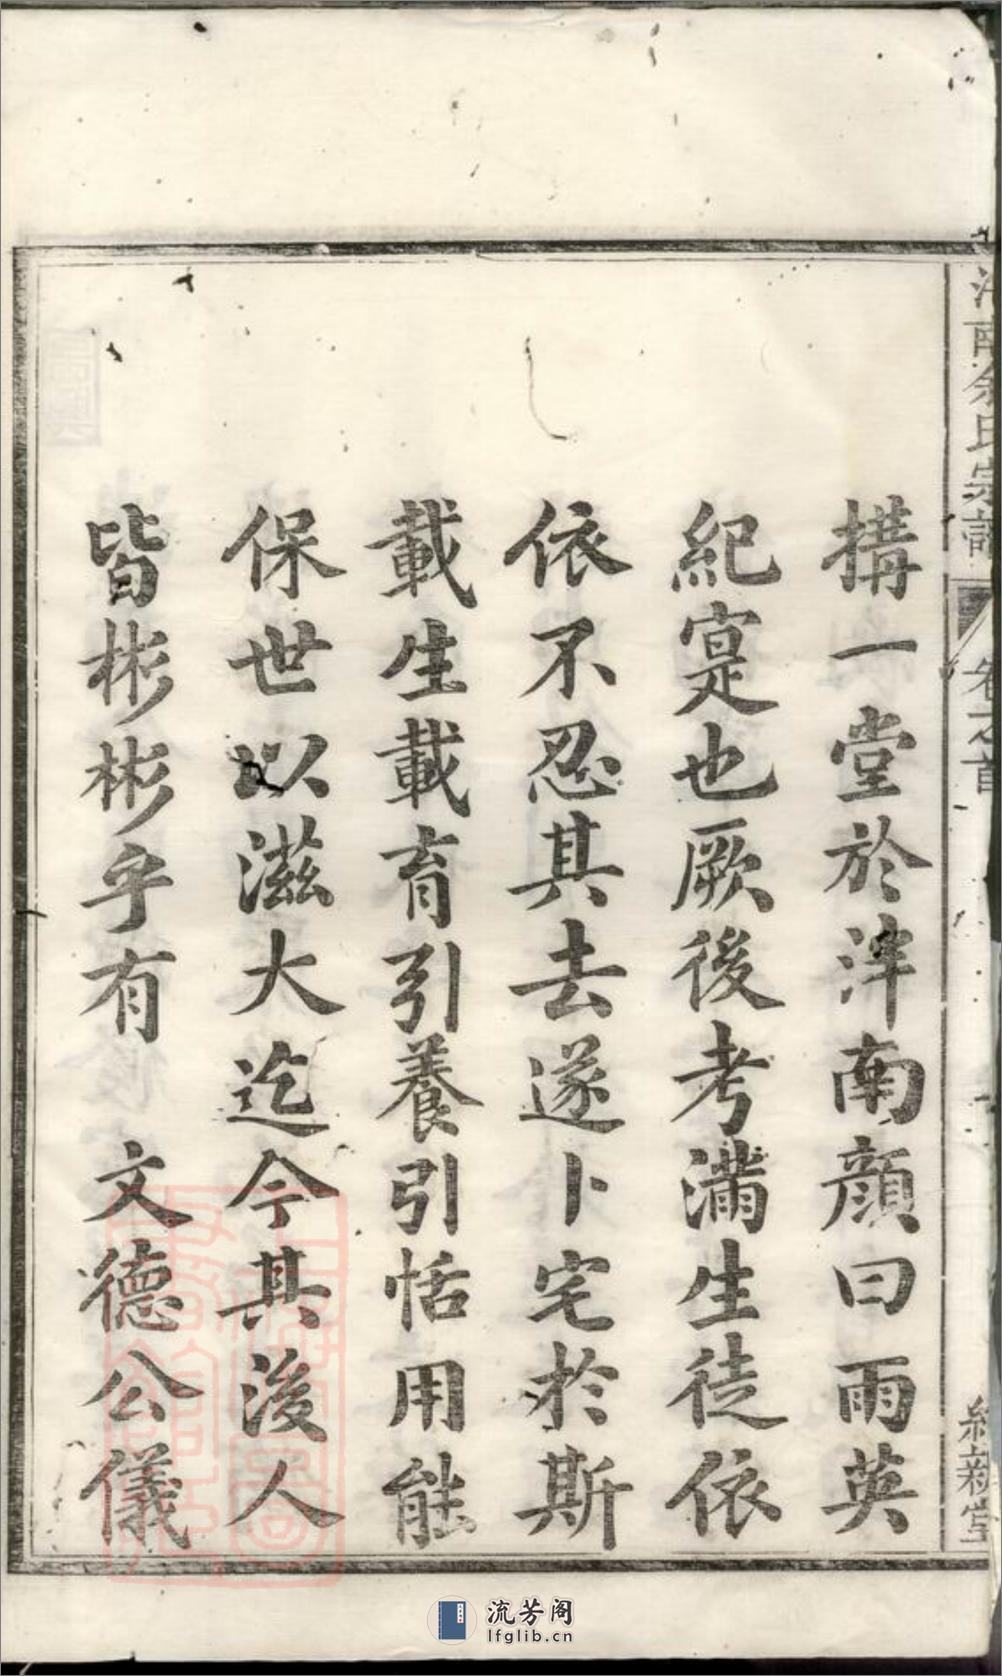 南余氏宗譜
卷之首
新堂
搆一堂於泮南顔曰雨英
紀寔也厥後考滿生徒依
依不忍其去遂卜宅於斯
載生載育引養引恬用能
保世以滋大迄今其後人
皆彬彬乎有　文德公儀
流芳阁
lfglib.cn